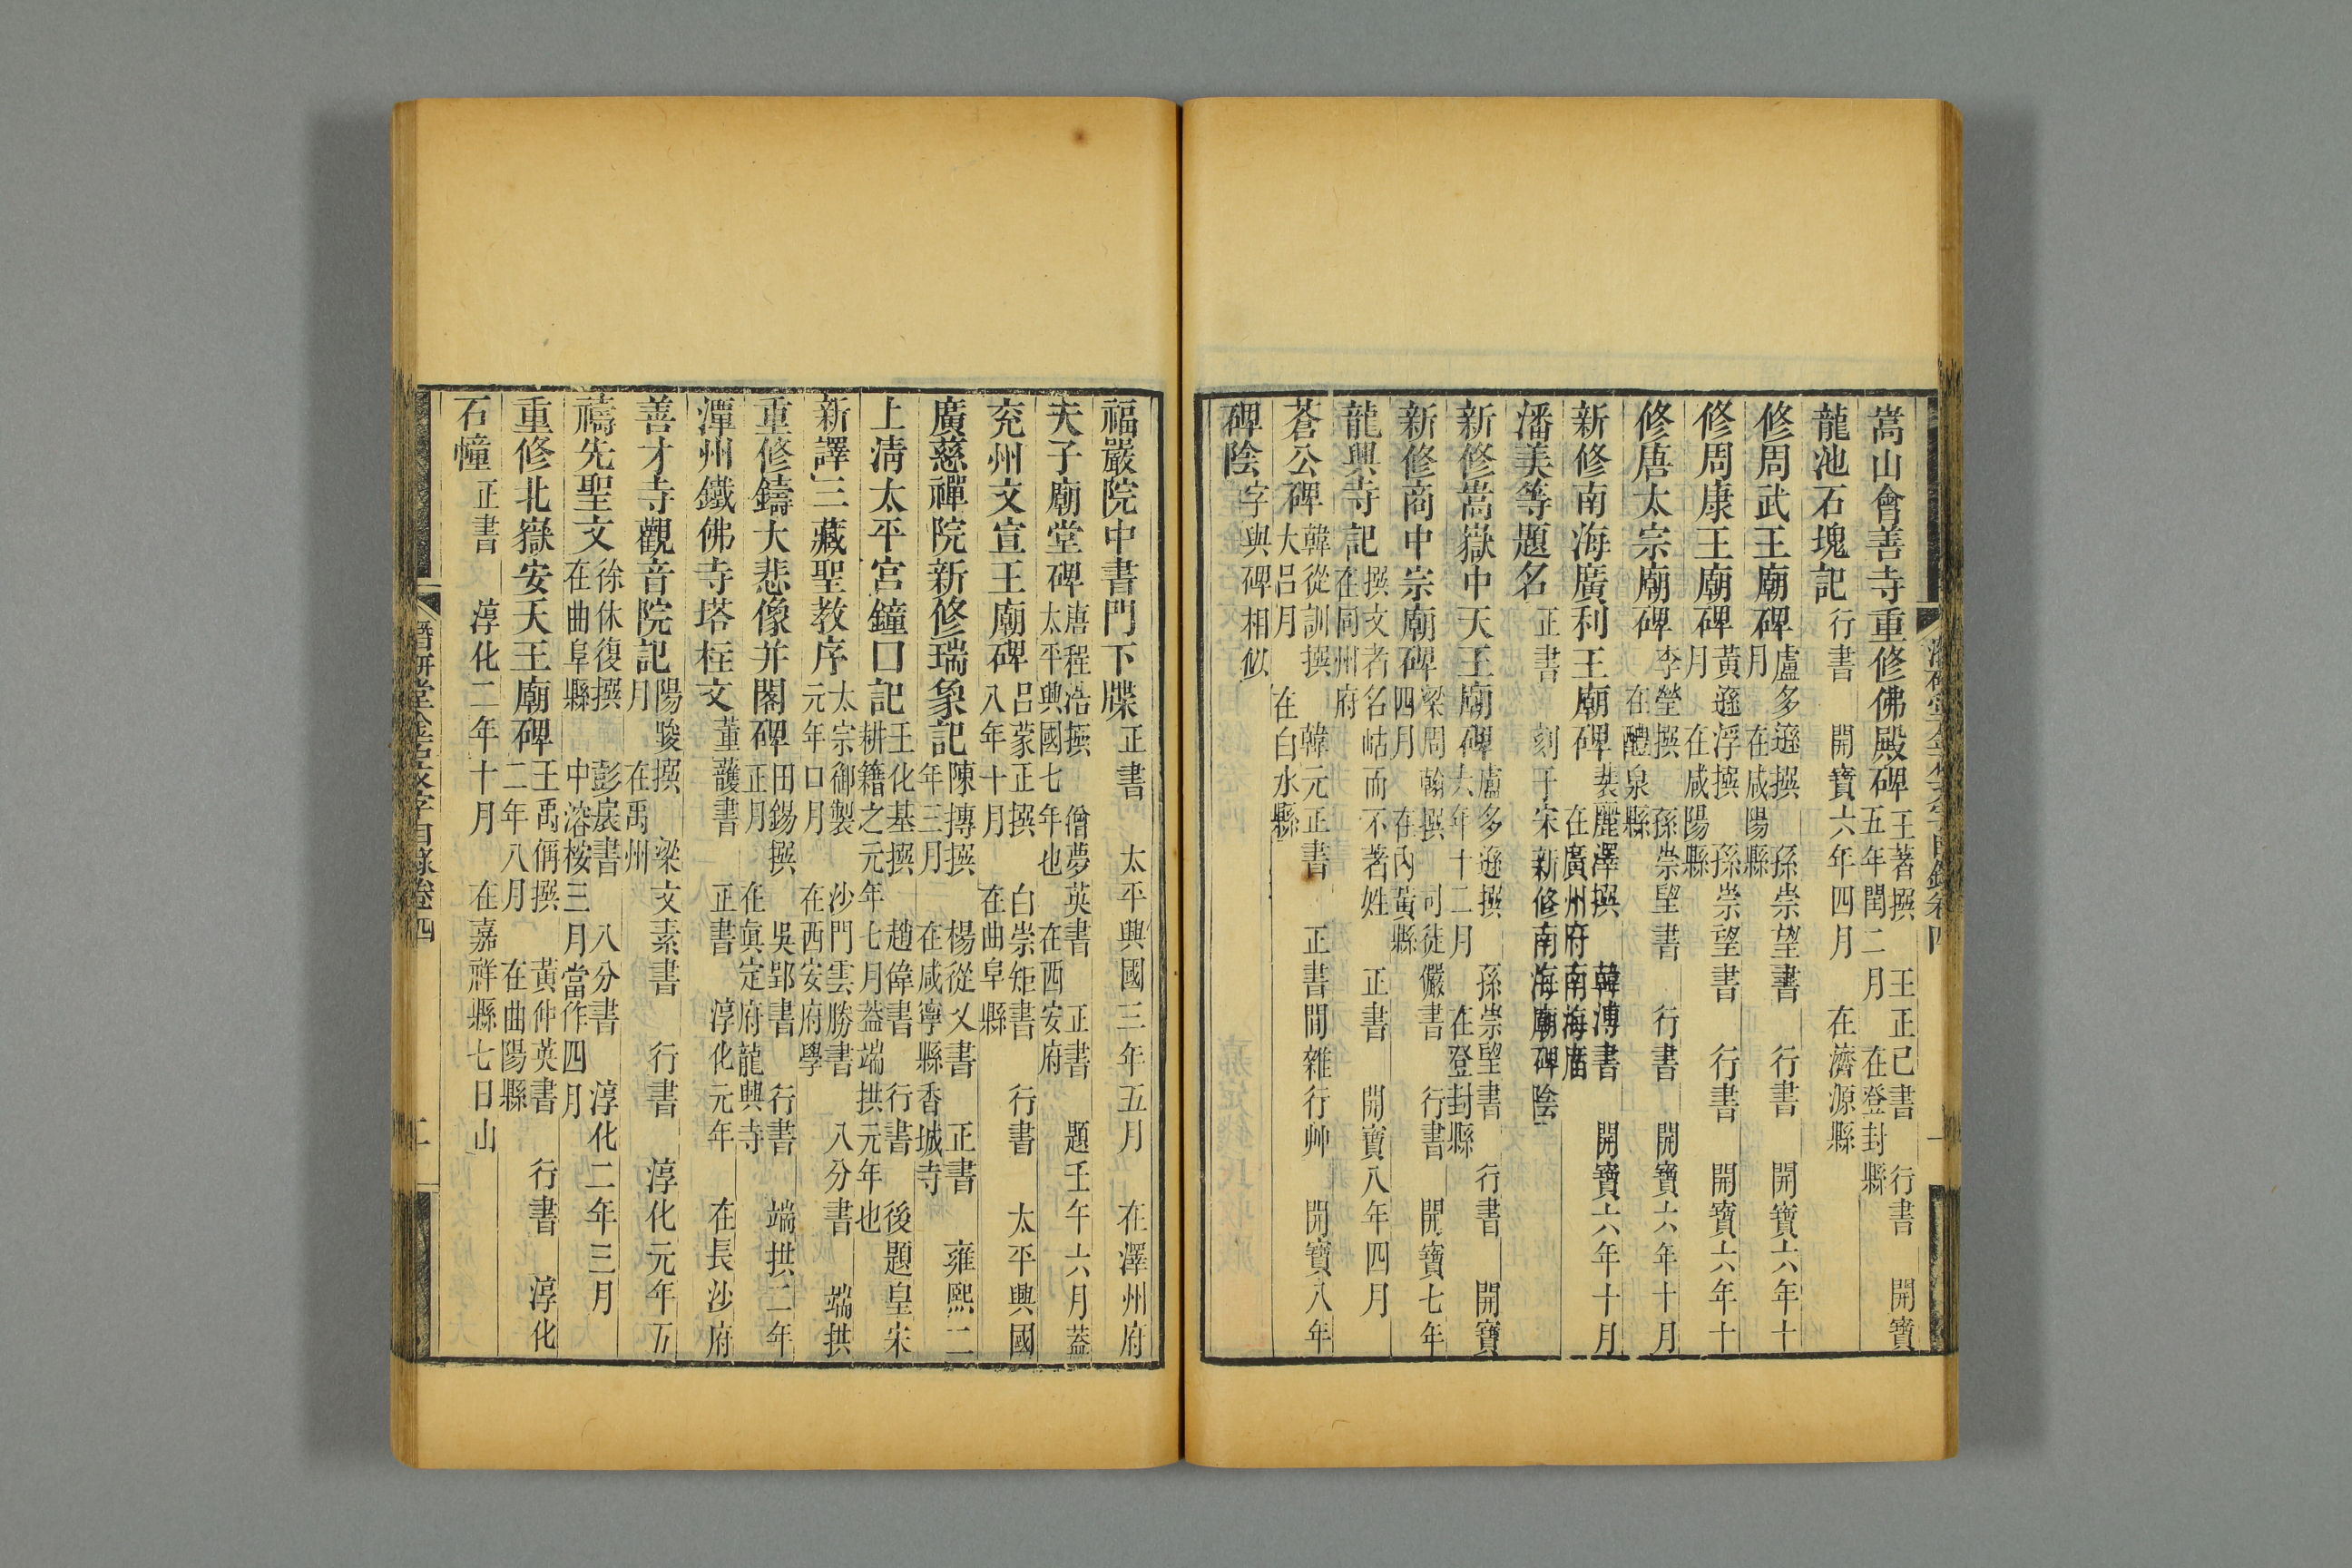 嵩山會善寺重修佛殿碑 王著撰 王正己書 行書 開寶五年閏二月 在登封縣
龍池石塊記 行書 開寶六年四月 在濟源縣
修周武王廟碑 盧多遜撰 孫崇望書 行書 開寶六年十月 在咸陽縣
修周康王廟碑 黃遜浮撰 孫崇望書 行書 開寶六年十月 在咸陽縣
修唐太宗廟碑 李瑩撰 孫崇望書 行書 開寶六年十月 在醴泉縣
新修南海廣利王廟碑 裴麗澤撰 韓溥書 開寶六年十月 在廣州府南海廟
潘美等題名 正書 刻于宋新修南海廟碑陰
新修嵩嶽中天王廟碑 盧多遜撰 孫崇望書 行書 開寶六年十二月 在登封縣
新修商中宗廟碑 梁周翰撰 司徒儼書 行書 開寶七年四月 在內黃縣
龍興寺記 撰文者名岵而不著姓 正書 開寶八年四月 在同州府
蒼公碑 韓從訓撰 韓元正書 正書間雜行艸 開寶八年大呂月 在白水縣
碑陰 字與碑相似
福嚴院中書門下牒 正書 太平興國三年五月 在澤州府
夫子廟堂碑 唐程浩撰 僧夢英書 正書 題壬午六月蓋太平興國七年也 在西安府
兖州文宣王廟碑 呂蒙正撰 白崇矩書 行書 太平興國八年十月 在曲阜縣
廣慈禪院新修瑞象記 陳摶撰 楊從乂書 正書 雍熙二年三月 在咸寧縣香城寺
上清太平宮鐘口記 王化基撰 趙偉書 行書 後題皇宋耕籍之元年七月蓋端拱元年也
新譯三藏聖教序 太宗御製 沙門雲勝書 八分書 端拱元年口月 在西安府學
重修鑄大悲像并閣碑 田錫撰 吳郢書 行書 端拱二年正月 在眞定府龍興寺
潭州鐵佛寺塔柱文 董護書 正書 淳化元年 在長沙府
善才寺觀音院記 陽駿撰 梁文素書 行書 淳化元年五月 在禹州
禱先聖文 徐休復撰 彭扆書 八分書 淳化二年三月 在曲阜縣 中溶桉三月當作四月
重修北嶽安天王廟碑 王禹偁撰 黃仲英書 行書 淳化二年八月 在曲陽縣
石幢 正書 淳化二年十月 在嘉祥縣七日山
潛硏堂金石文字目錄卷四 二